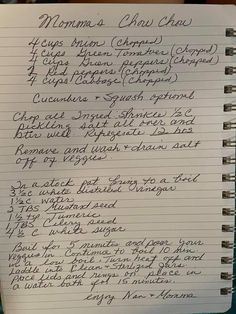 Momma's Chow Chow
4 cups Onion (Chopped)
4 cups Green Tomatoes (Chopped)
4 cups Green peppers (Chopped)
2 Red peppers (Chopped)
4 cups Cabbage (Chopped)
Cucumbers + Squash optional
Chop all Ingred Sprinkle ½ C
Pickling salt all over and
Stir well Refrigerate 12 hrs
Remove and wash + drain salt
off of veggies
In a stock pot bring to a boil
3½C white distilled Vinegar
1½C water
2 TBS Mustard seed
1½ tsp Tumeric
1 TBS Celery seed
4½ C white sugar
Boil for 5 minutes and pour your
veggies in Continue to boil 10 min
on a low boil. Turn heat off and
laddle into Clean + Sterilized jars
Place lids and rings on place in
a water bath for 15 minutes.
enjoy Nan + Momma